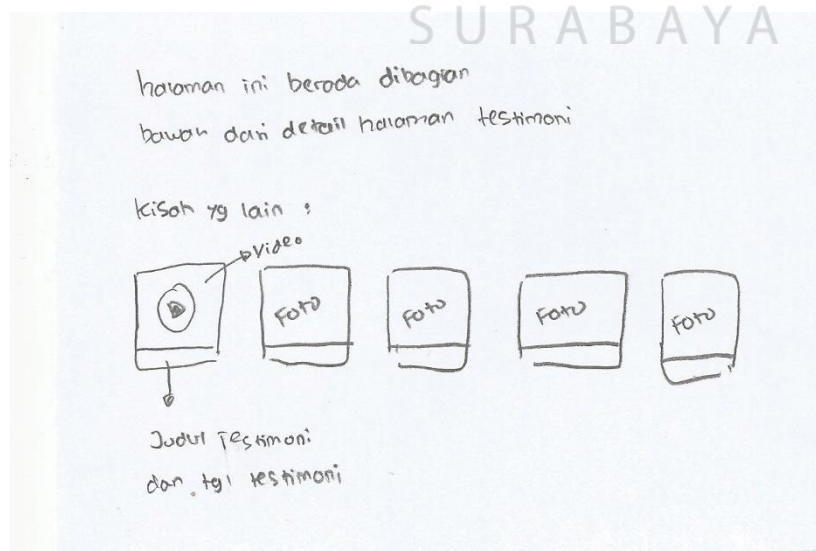 SURABAYA
halaman ini berada dibagian
bawah dari detail halaman testimoni
Kisah yg lain :
Video
Foto
Foto
Foto
Foto
Judul Testimoni
dan tgl testimoni